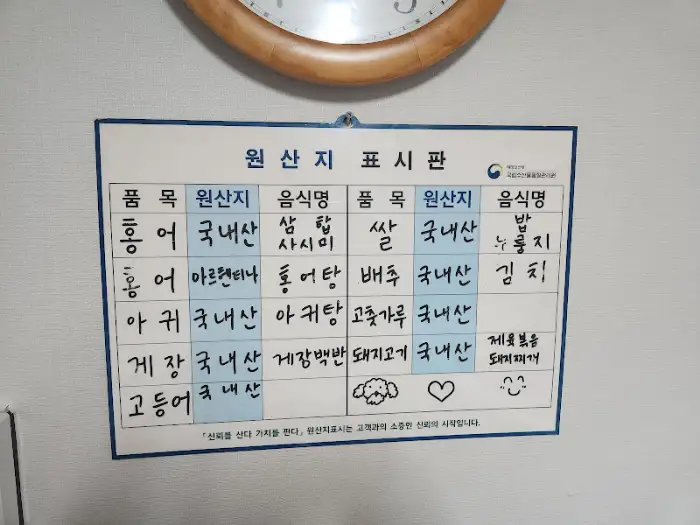 원산지 표시판
해양수산부
국립수산물품질관리원
품 목 원산지 음식명 품 목 원산지 음식명
홍어 국내산 삼합 사시미 쌀 국내산 밥 누룽지
홍어 아르헨티나 홍어탕 배추 국내산 김치
아귀 국내산 아귀탕 고춧가루 국내산
게장 국내산 게장백반 돼지고기 국내산 제육볶음 돼지찌개
고등어 국내산
「신뢰를 산다 가치를 판다」 원산지표시는 고객과의 소중한 신뢰의 시작입니다.